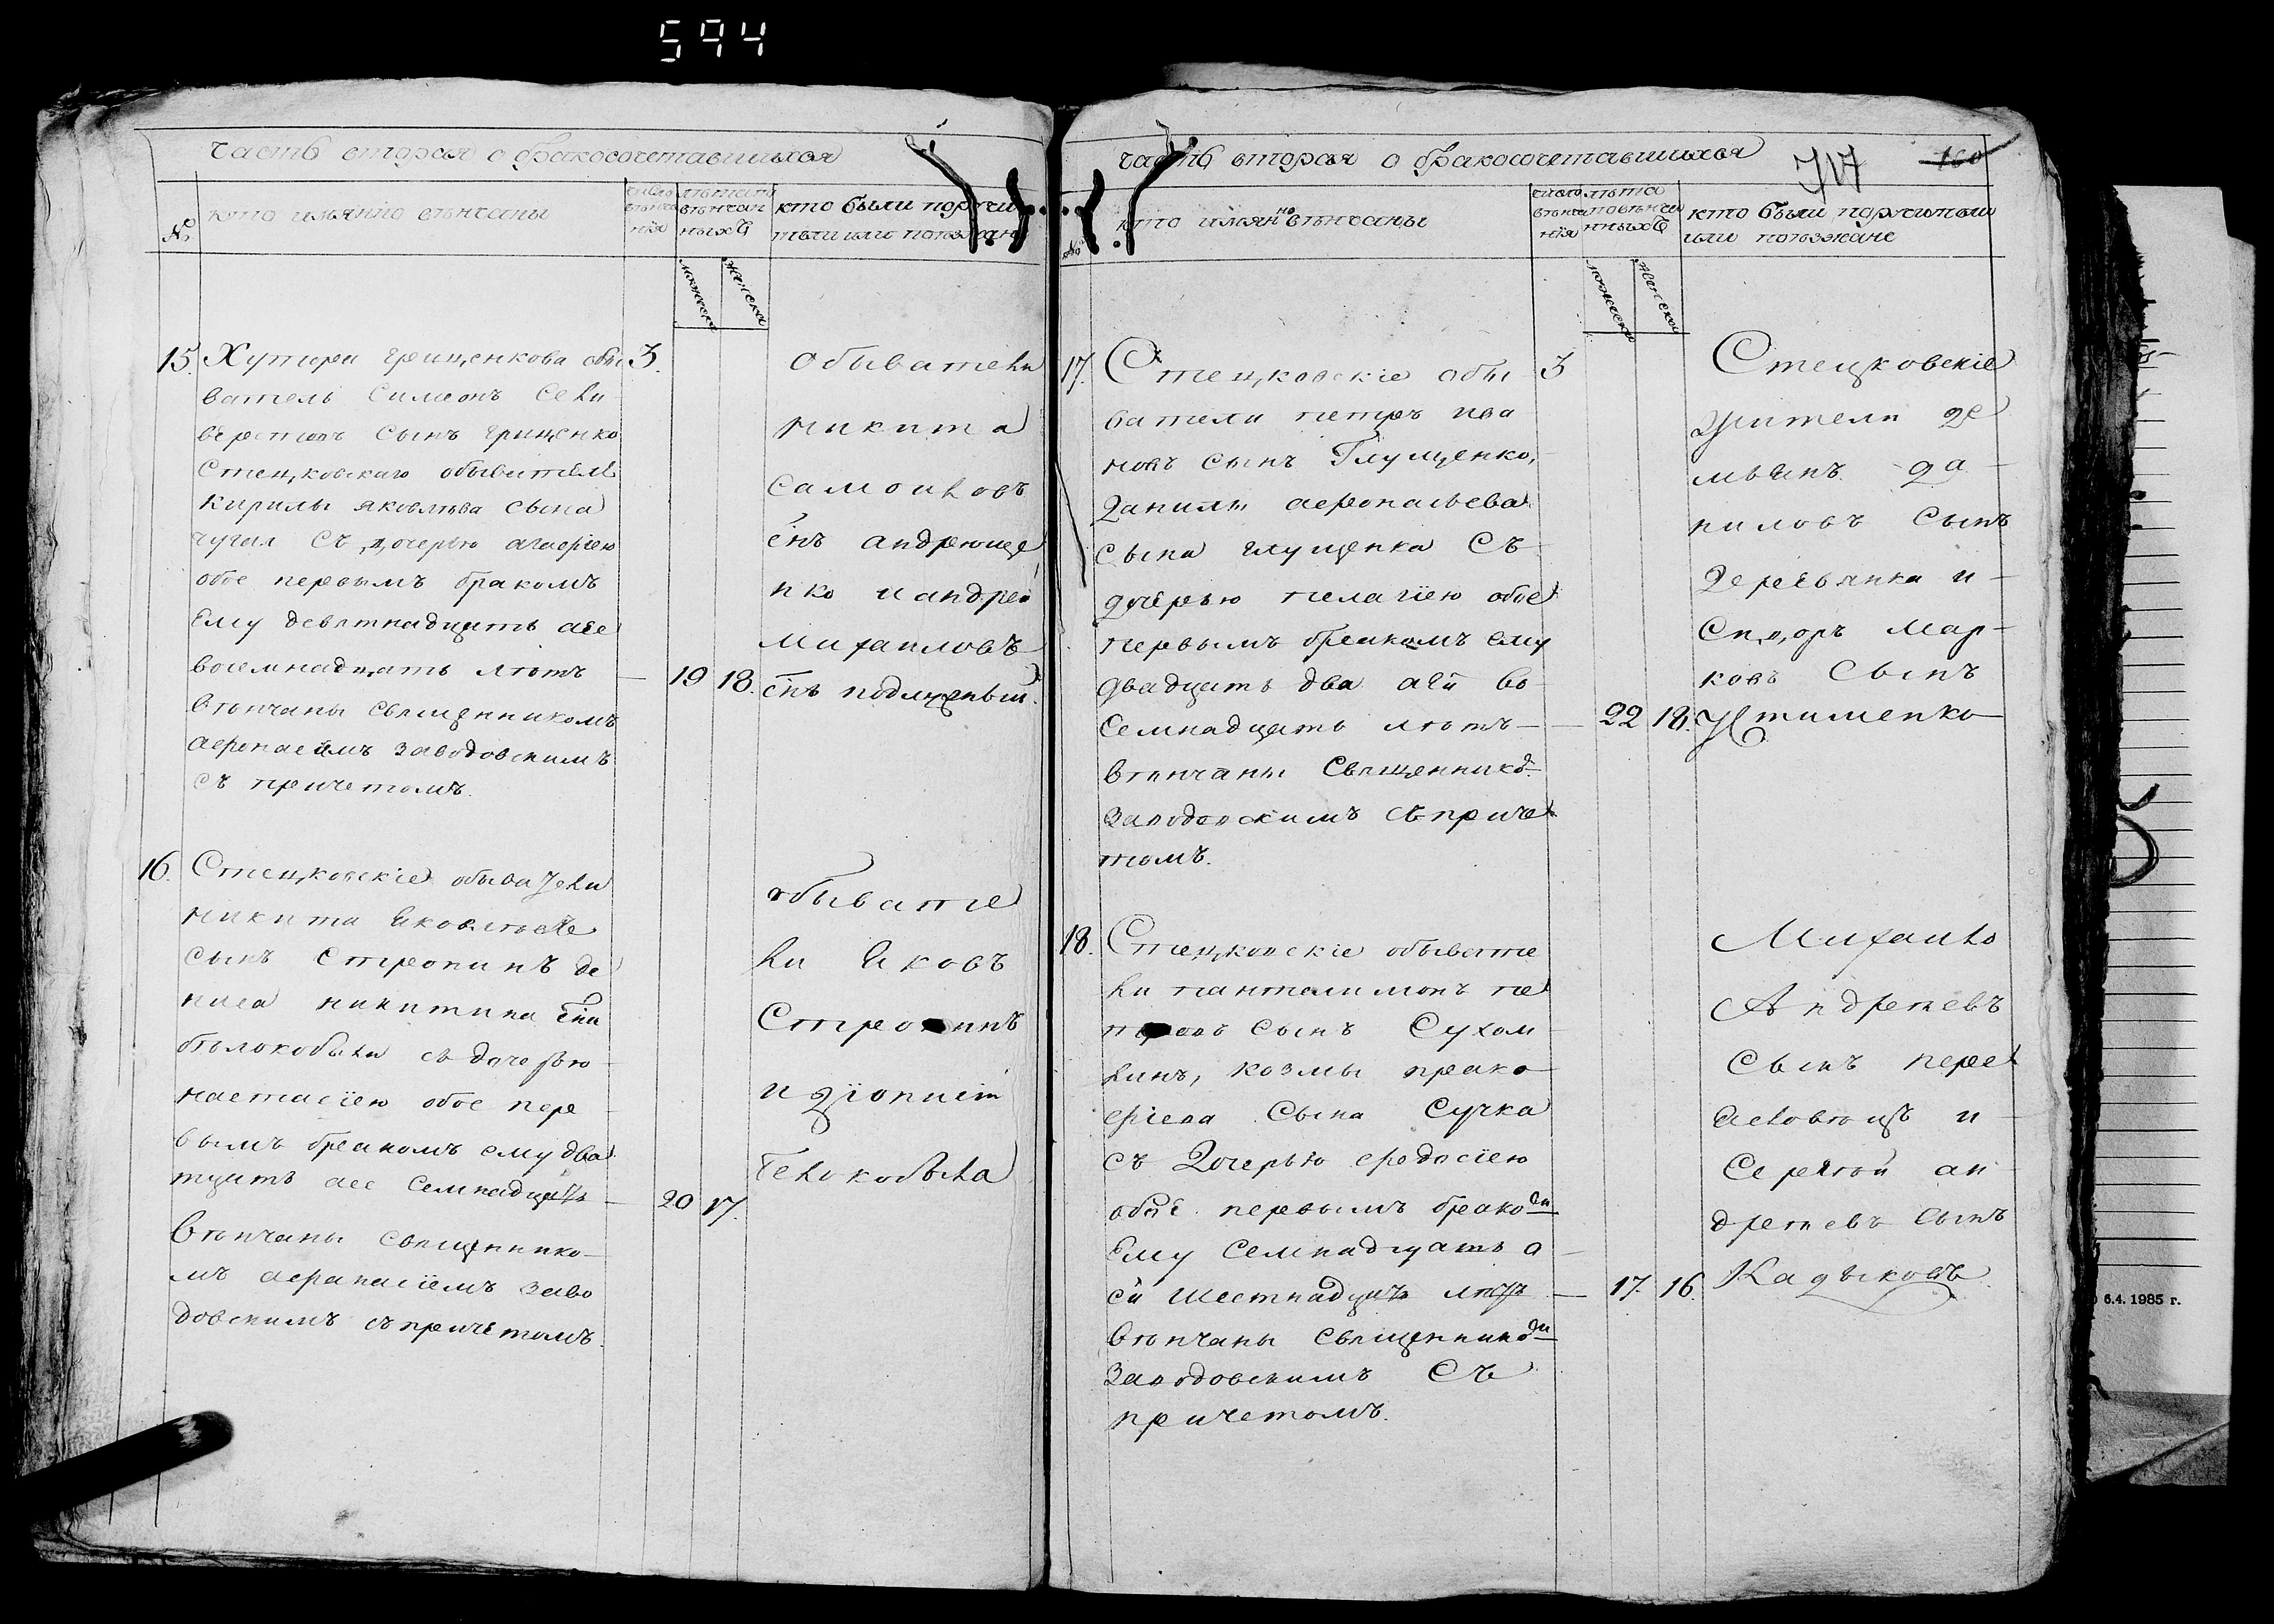 594
часть вторая о бракосочетавшихся
№
кто имянно венчаны
кто были поручи
тели или поезжан
15. Хутора Грищенкова обы 3.
ватель Симеонъ Сели
верстовъ сынъ Грищенко
Стецковскаго обывателя
Кирилы Яковлѣва сына
чугая съ дочерью агафіею
обое первымъ бракомъ
Ему девятнадцать аее
восемнадцать лѣтъ — 19 18.
вѣнчаны священникомъ
афонасіемъ Заводовскимъ
съ причетомъ.
Обыватели
Никита
Самоиловъ
снъ андрюще
нко и андрей
михаиловъ
снъ подлуцный.
16. Стецковскіе обыватели
никита Яковлѣвъ
сынъ Стрѳпинъ де
ниса никитина сна
бѣлокобыли съ дочерью
настасіею обое пер
вымъ бракомъ ему два
тцать аее семнадцать — 20 17.
вѣнчаны священнико
мъ афанасіемъ Заво
довскимъ съ причетомъ.
обывате
ли Яковъ
и Діонисій
белокобыла
часть вторая о бракосочетавшихся
717 160
№
кто имянно венчаны
число
венча
нія
лѣта
кто были поручители
или поезжане
17. Стецковскіе обы 3
ватели петръ ива
новъ сынъ Глущенко,
Данилы афонасьева
сына глущенка съ
дочерью пелагіею обое
первымъ бракомъ ему
двадцать два аей во
семнадцать лѣтъ — 22 18.
вѣнчаны священико
Заводовскимъ съ приче
томъ.
Стецковскіе
жители де
мьянъ да
ниловъ сынъ
Деревянка и
Сидоръ мар
ковъ сынъ
Устименко
18. Стецковскіе обывате
ли пантелимонъ пе
тровъ сынъ Сухом
линъ, козмы прако
фіева сына Сучка
съ Дочерью Федосіею
обое первымъ брако
Ему семнадцать а
ей шестнадцать лѣтъ — 17. 16.
вѣнчаны священнико
Заводовскимъ съ
причетомъ.
Михаило
Андрѣевъ
сынъ пере
и
Сергѣй ан
дрѣевъ сынъ
Кадыковъ
6.4.1985 г.